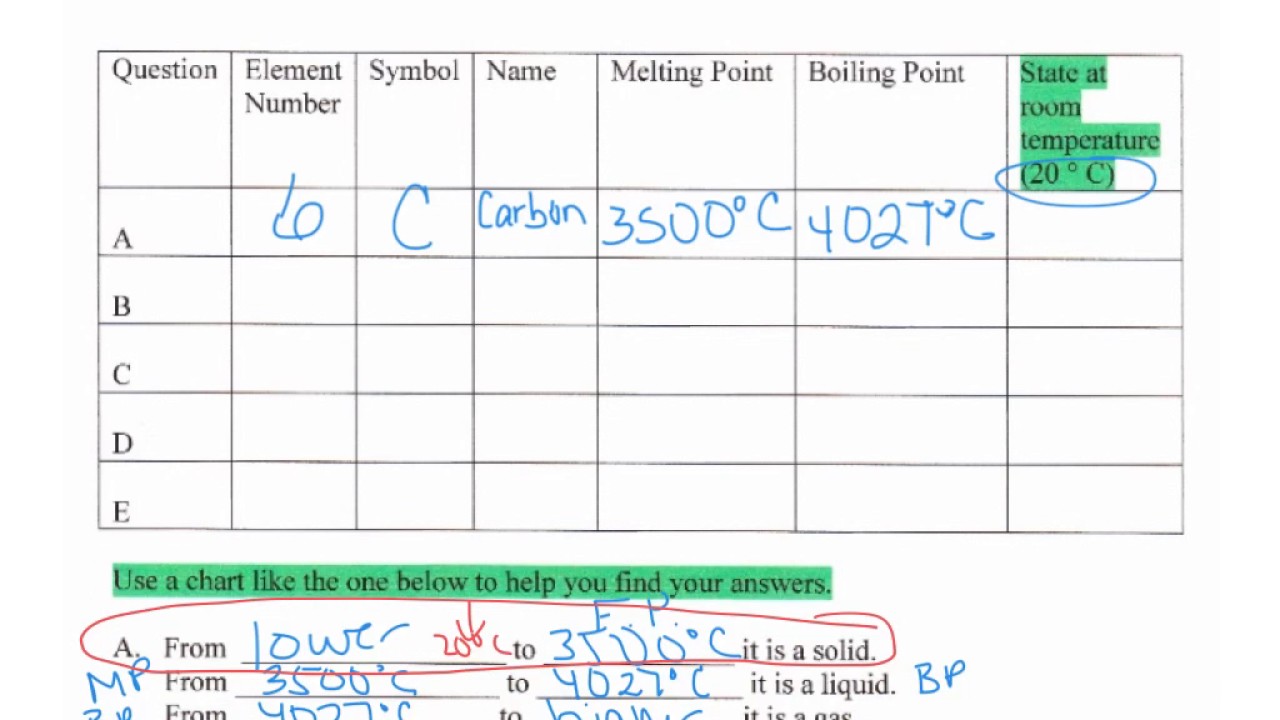 Question Element Number Symbol Name Melting Point Boiling Point State at room temperature (20 ° C)
A 6 C Carbon 3500°C 4027°C
B
C
D
E
Use a chart like the one below to help you find your answers.
F.P.
A. From lower 20°C to 3500°C it is a solid.
MP From 3500°C to 4027°C it is a liquid. BP
BP From 4027°C to higher it is a gas